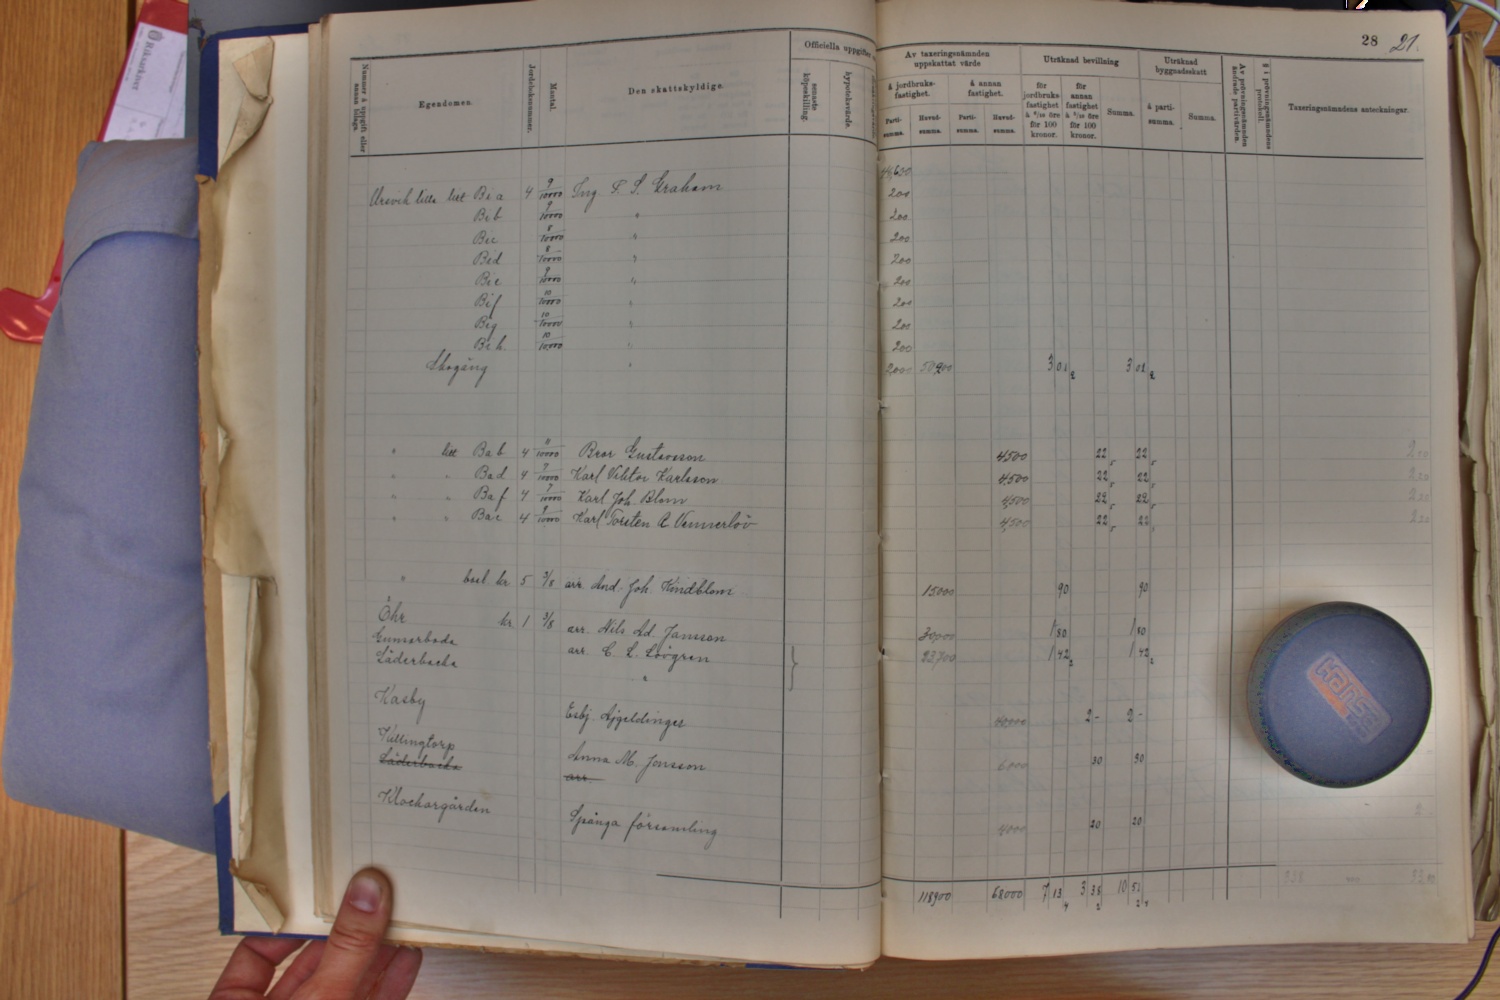 28 21.
Nummer å uppgift eller annan bilaga.
Egendomen.
Jordeboksnummer.
Mantal.
Den skattskyldige.
Officiella uppgifter
senaste köpeskilling.
hypoteksvärde.
Av taxeringsnämnden uppskattat värde
å jordbruks-fastighet.
å annan fastighet.
Parti-summa.
Huvud-summa.
Parti-summa.
Huvud-summa.
Uträknad bevillning
för jordbruks-fastighet å 6/10 öre för 100 kronor.
för annan fastighet å 5/10 öre för 100 kronor.
Summa.
Uträknad byggnadsskatt
å parti-summa.
Summa.
Av prövningsnämnden ändrade partivärden.
§ i prövningsnämndens protokoll.
Taxeringsnämndens anteckningar.
Ursvik lilla litt Bea 4 9/10000 Ing. F. S. Graham 200
Beb 9/10000 " 200
Bec 8/10000 " 200
Bed 8/10000 " 200
Bee 9/10000 " 200
Bef 10/10000 " 200
Beg 10/10000 " 200
Beh. 10/10000 " 200
Skogäng " 2000 50200 3 01 2 3 01 2
" litt Bab 4 11/10000 Bror Gustavsson 4500 22 5 22 5
" " Bad 4 7/10000 Karl Viktor Karlsson 4500 22 5 22 5
" " Baf 4 7/10000 Karl Joh. Blom 4500 22 5 22 5
" " Bac 4 9/10000 Karl Torsten A Vennerlöv 4500 22 5 22 5
" kr 5 3/8 arr. And. Joh. Kindblom 15000 90 90
Öhr kr 1 3/8 arr. Nils Ad. Jansson 30000 1 80 1 80
Gunnarboda arr. C. L. Lövgren 23700 1 42 2 1 42 2
Läderbacka "
Kasby 40000 2 - 2 -
Killingtorp Anna M. Jonsson 6000 30 30
Läderbacka arr.
Klockargården Spånga församling 4000 20 20
118900 68000 7 13 4 3 38 10 51
Riksarkivet